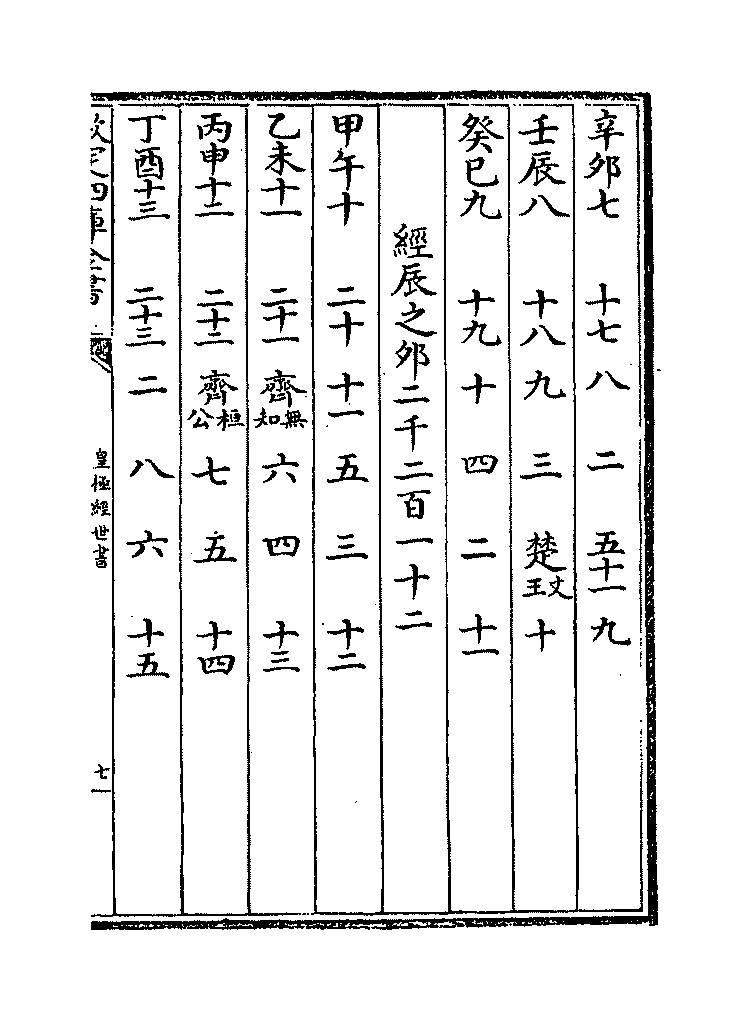 辛卯七 十七 八 二 五十一 九
壬辰八 十八 九 三 楚文王 十
癸巳九 十九 十 四 二 十一
經辰之卯二千二百一十二
甲午十 二十 十一 五 三 十二
乙未十一 二十一 齊無知 六 四 十三
丙申十二 二十二 齊桓公 七 五 十四
丁酉十三 二十三 二 八 六 十五
欽定四庫全書
皇極經世書
七